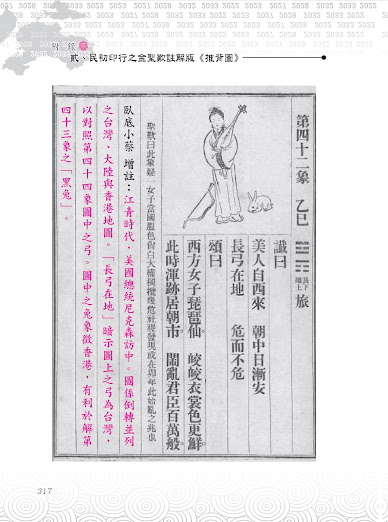 附錄
貳、民初印行之金聖歎註解版《推背圖》
第四十二象 乙巳 ䷷ 艮下離上 旅
讖曰
美人自西來 朝中日漸安
長弓在地 危而不危
頌曰
西方女子琵琶仙 皎皎衣裳色更鮮。
此時渾跡居朝市。 鬧亂君臣百萬般。
聖歎曰此象疑一女子當國服色尚白大權獨攬幾危社稷發現或在卯年此始亂之兆也
臥底小蔡 增註：江青時代，美國總統尼克森訪中。圖係倒轉並列
之台灣、大陸與香港地圖。「長弓在地」暗示圖上之弓為台灣，
以對照第四十四象圖中之弓。圖中之兔象徵香港，有利於解第
四十三象之「黑兔」。
317